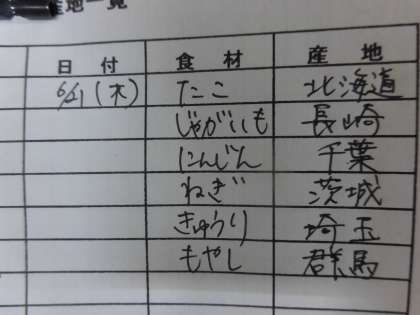 産地一覧
日付 食材 産地
6/21(木) たこ 北海道
じゃがいも 長崎
にんじん 千葉
ねぎ 茨城
きゅうり 埼玉
もやし 群馬